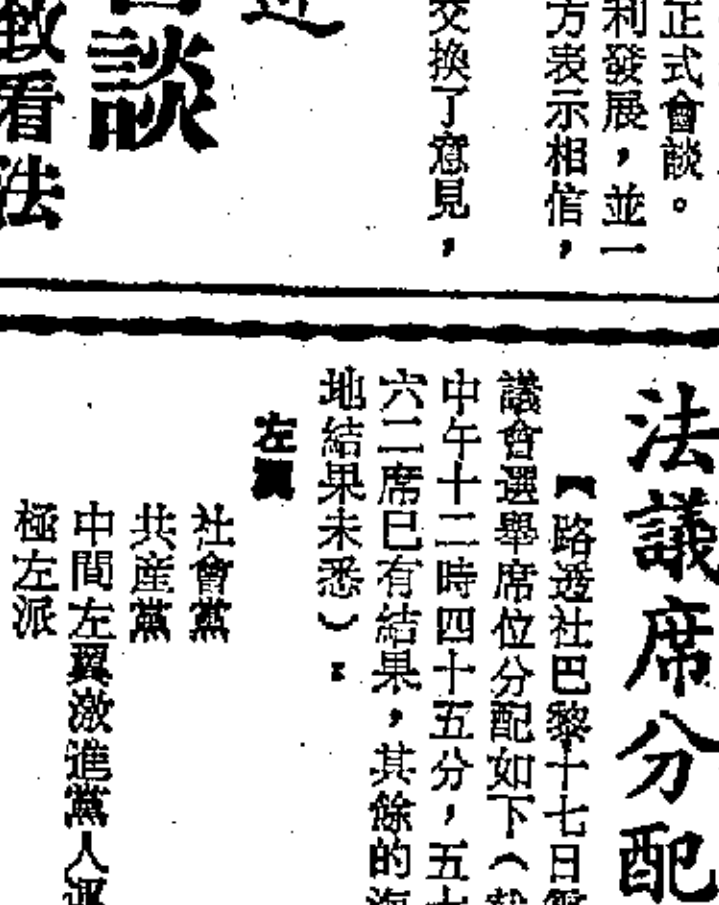 正式會談。
利發展，並一
方表示相信，
交換了意見，
談
致看法
法議席分配
【路透社巴黎十七日
議會選舉席位分配如下（
中午十二時四十五分，五七
六二席已有結果，其餘的海
地結果未悉）：
左翼
社會黨
共產黨
中間左翼激進黨人運
極左派